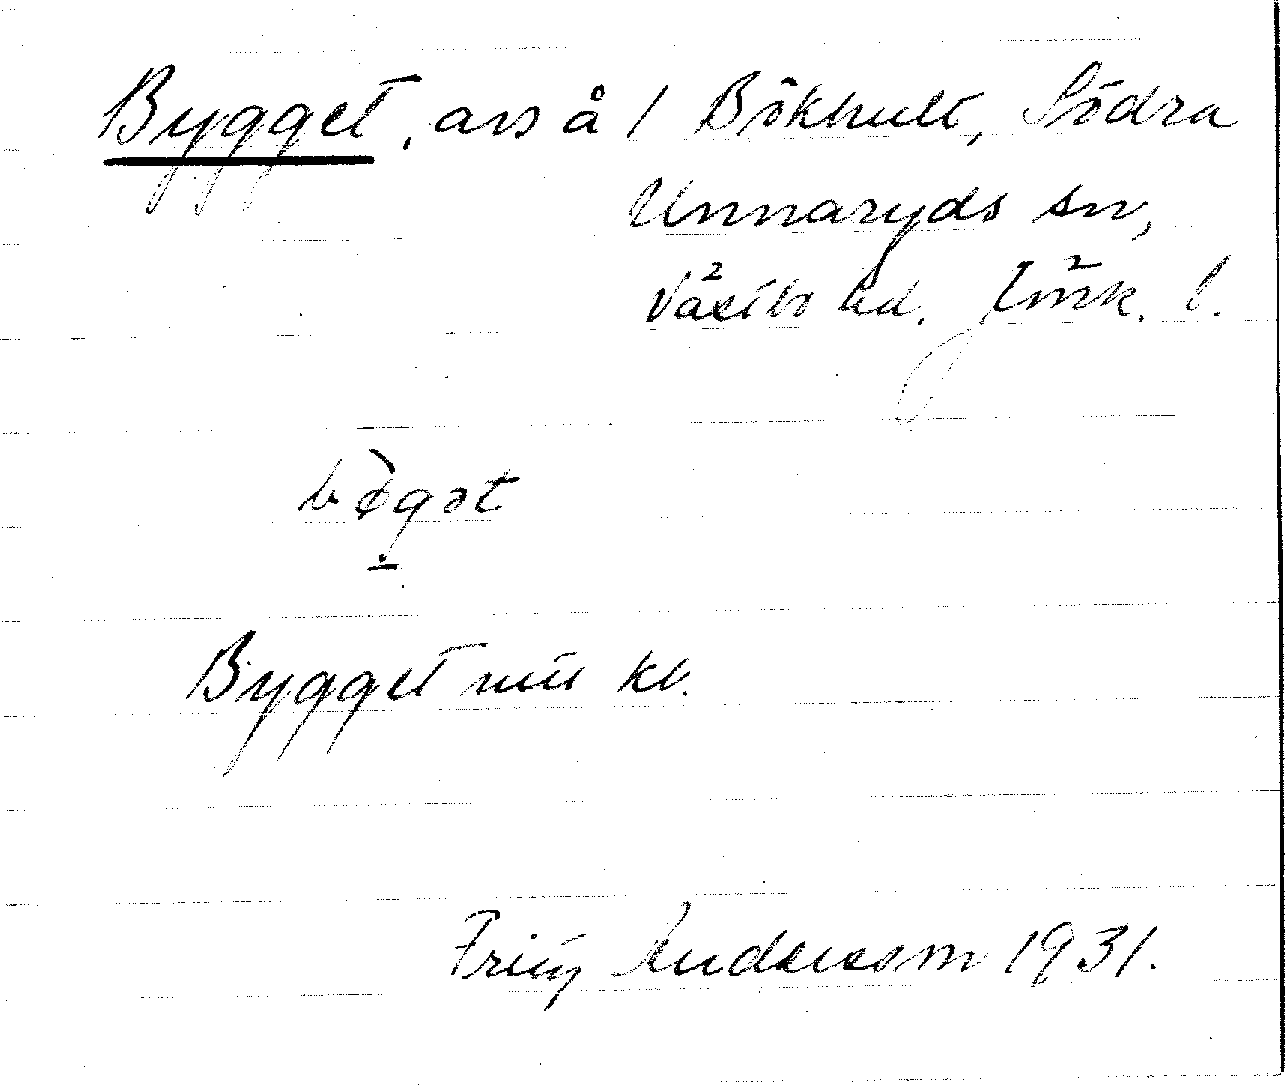 Bygget, avs å 1 Bökhult, Södra
Unnaryds sn,
Västbo hd. Jönk. l.
bø̀gət
Bygget mtl kl.
Fritz Andersson 1931.